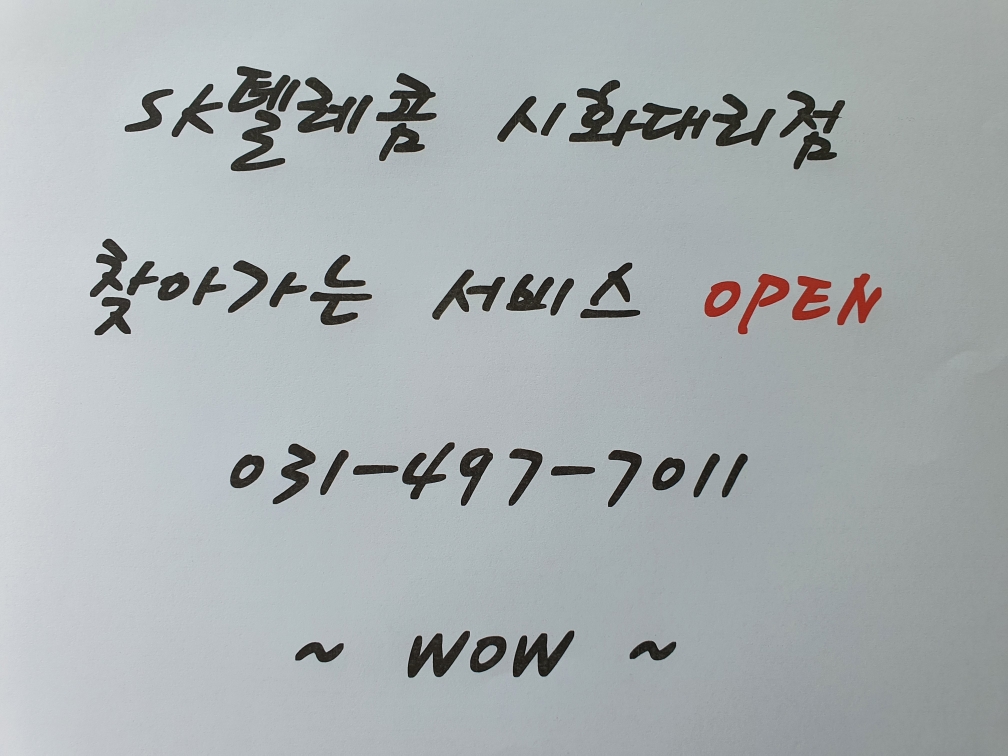 SK텔레콤 시화대리점
찾아가는 서비스 OPEN
031-497-7011
~ WOW ~